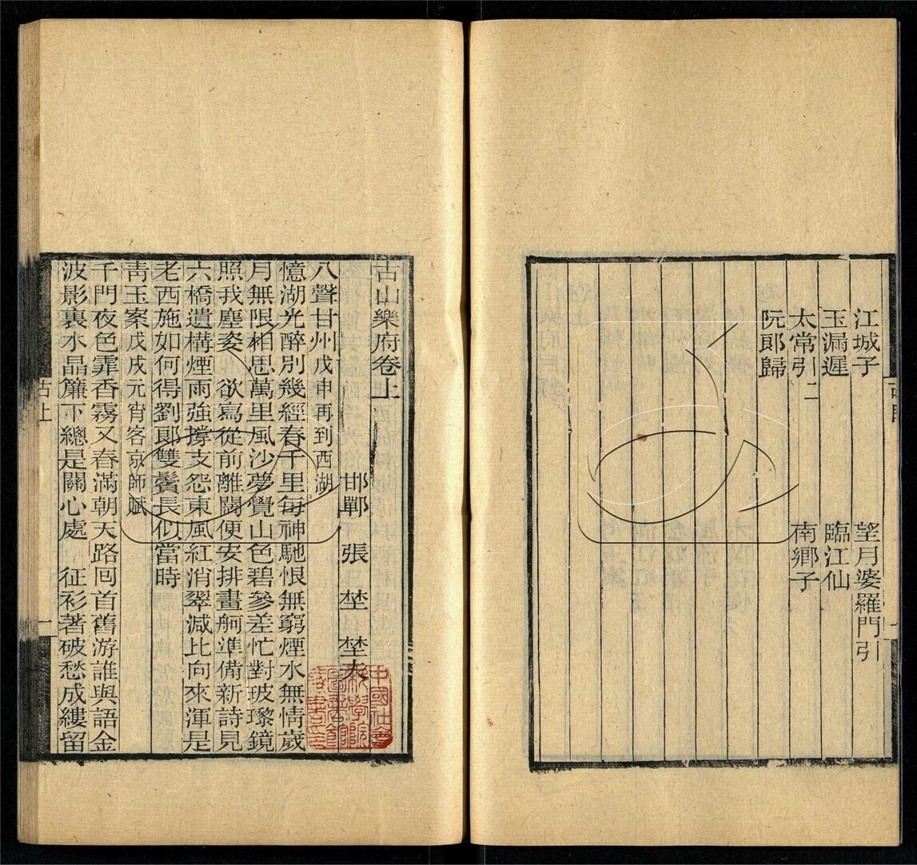 江城子　望月婆羅門引
玉漏遲　臨江仙
太常引二　南鄉子
阮郎歸
古山樂府卷上
邯鄲　張埜　埜夫
八聲甘州戊申再到西湖
憶湖光醉別幾經春千里每神馳恨無窮煙水無情歲
月無限相思萬里風沙夢覺山色碧參差忙對玻瓈鏡
照我塵姿　欲寫從前離闊便安排畫舸準備新詩見
六橋遺構煙雨強撐支怨東風紅消翠減比向來渾是
老西施如何得劉郞雙鬢長似當時
靑玉案戊戌元宵客京師賦
千門夜色霏香霧又春滿朝天路回首舊游誰與語金
波影裏水晶簾下總是關心處　征衫著破愁成縷留
古上
一